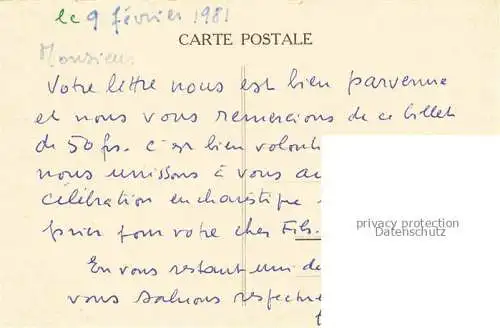 le 9 février 1981
CARTE POSTALE
Monsieur
Votre lettre nous est bien parvenue
et nous vous remercions de ce billet
de 50 frs. C'est bien volont
nous unissons à vous au
célébration eucharistique
prier pour votre cher Fils.
privacy protection
Datenschutz
En vous restant uni de
vous saluons respectu